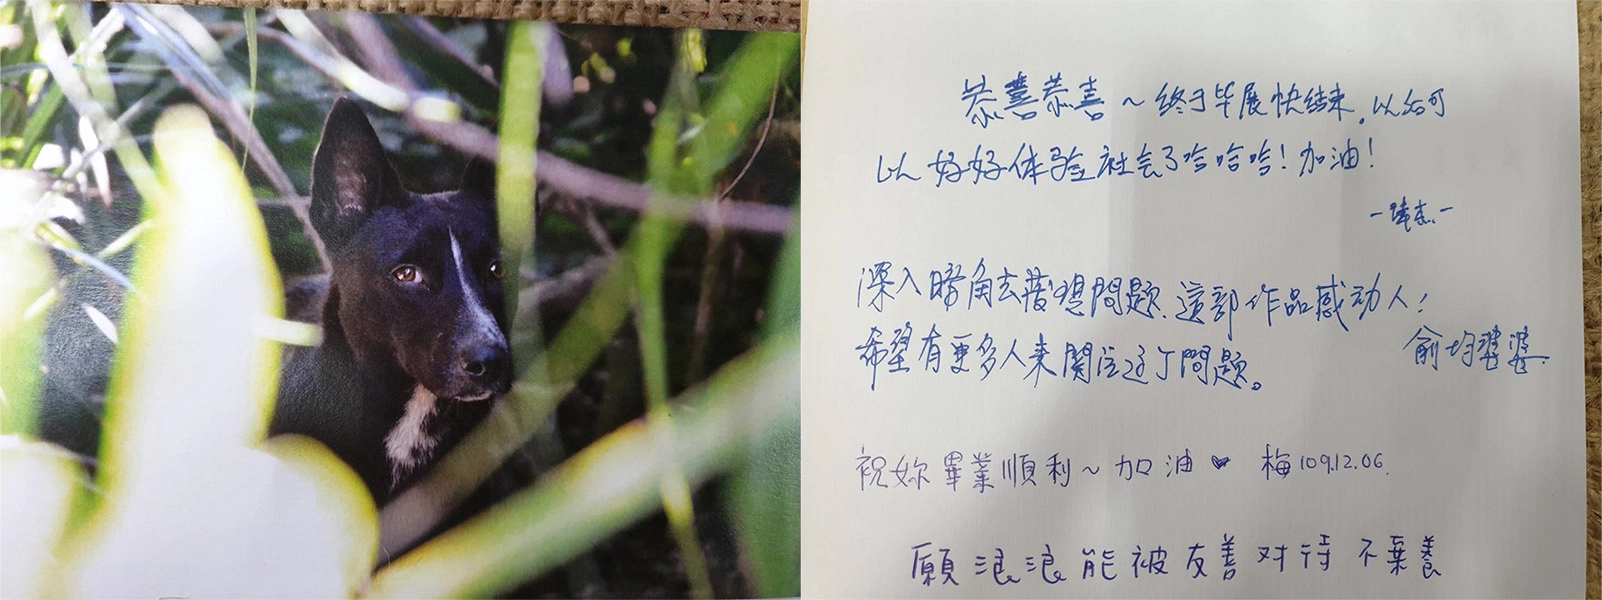 恭喜恭喜~终于毕展快结束,以后可
以好好体验社会了哈哈哈!加油!
深入暗角去發現問題,這部作品感动人!
希望有更多人来関注这个問題。
俞均婆婆
祝妳畢業順利~加油♥ 梅109.12.06.
願浪浪能被友善对待不棄養